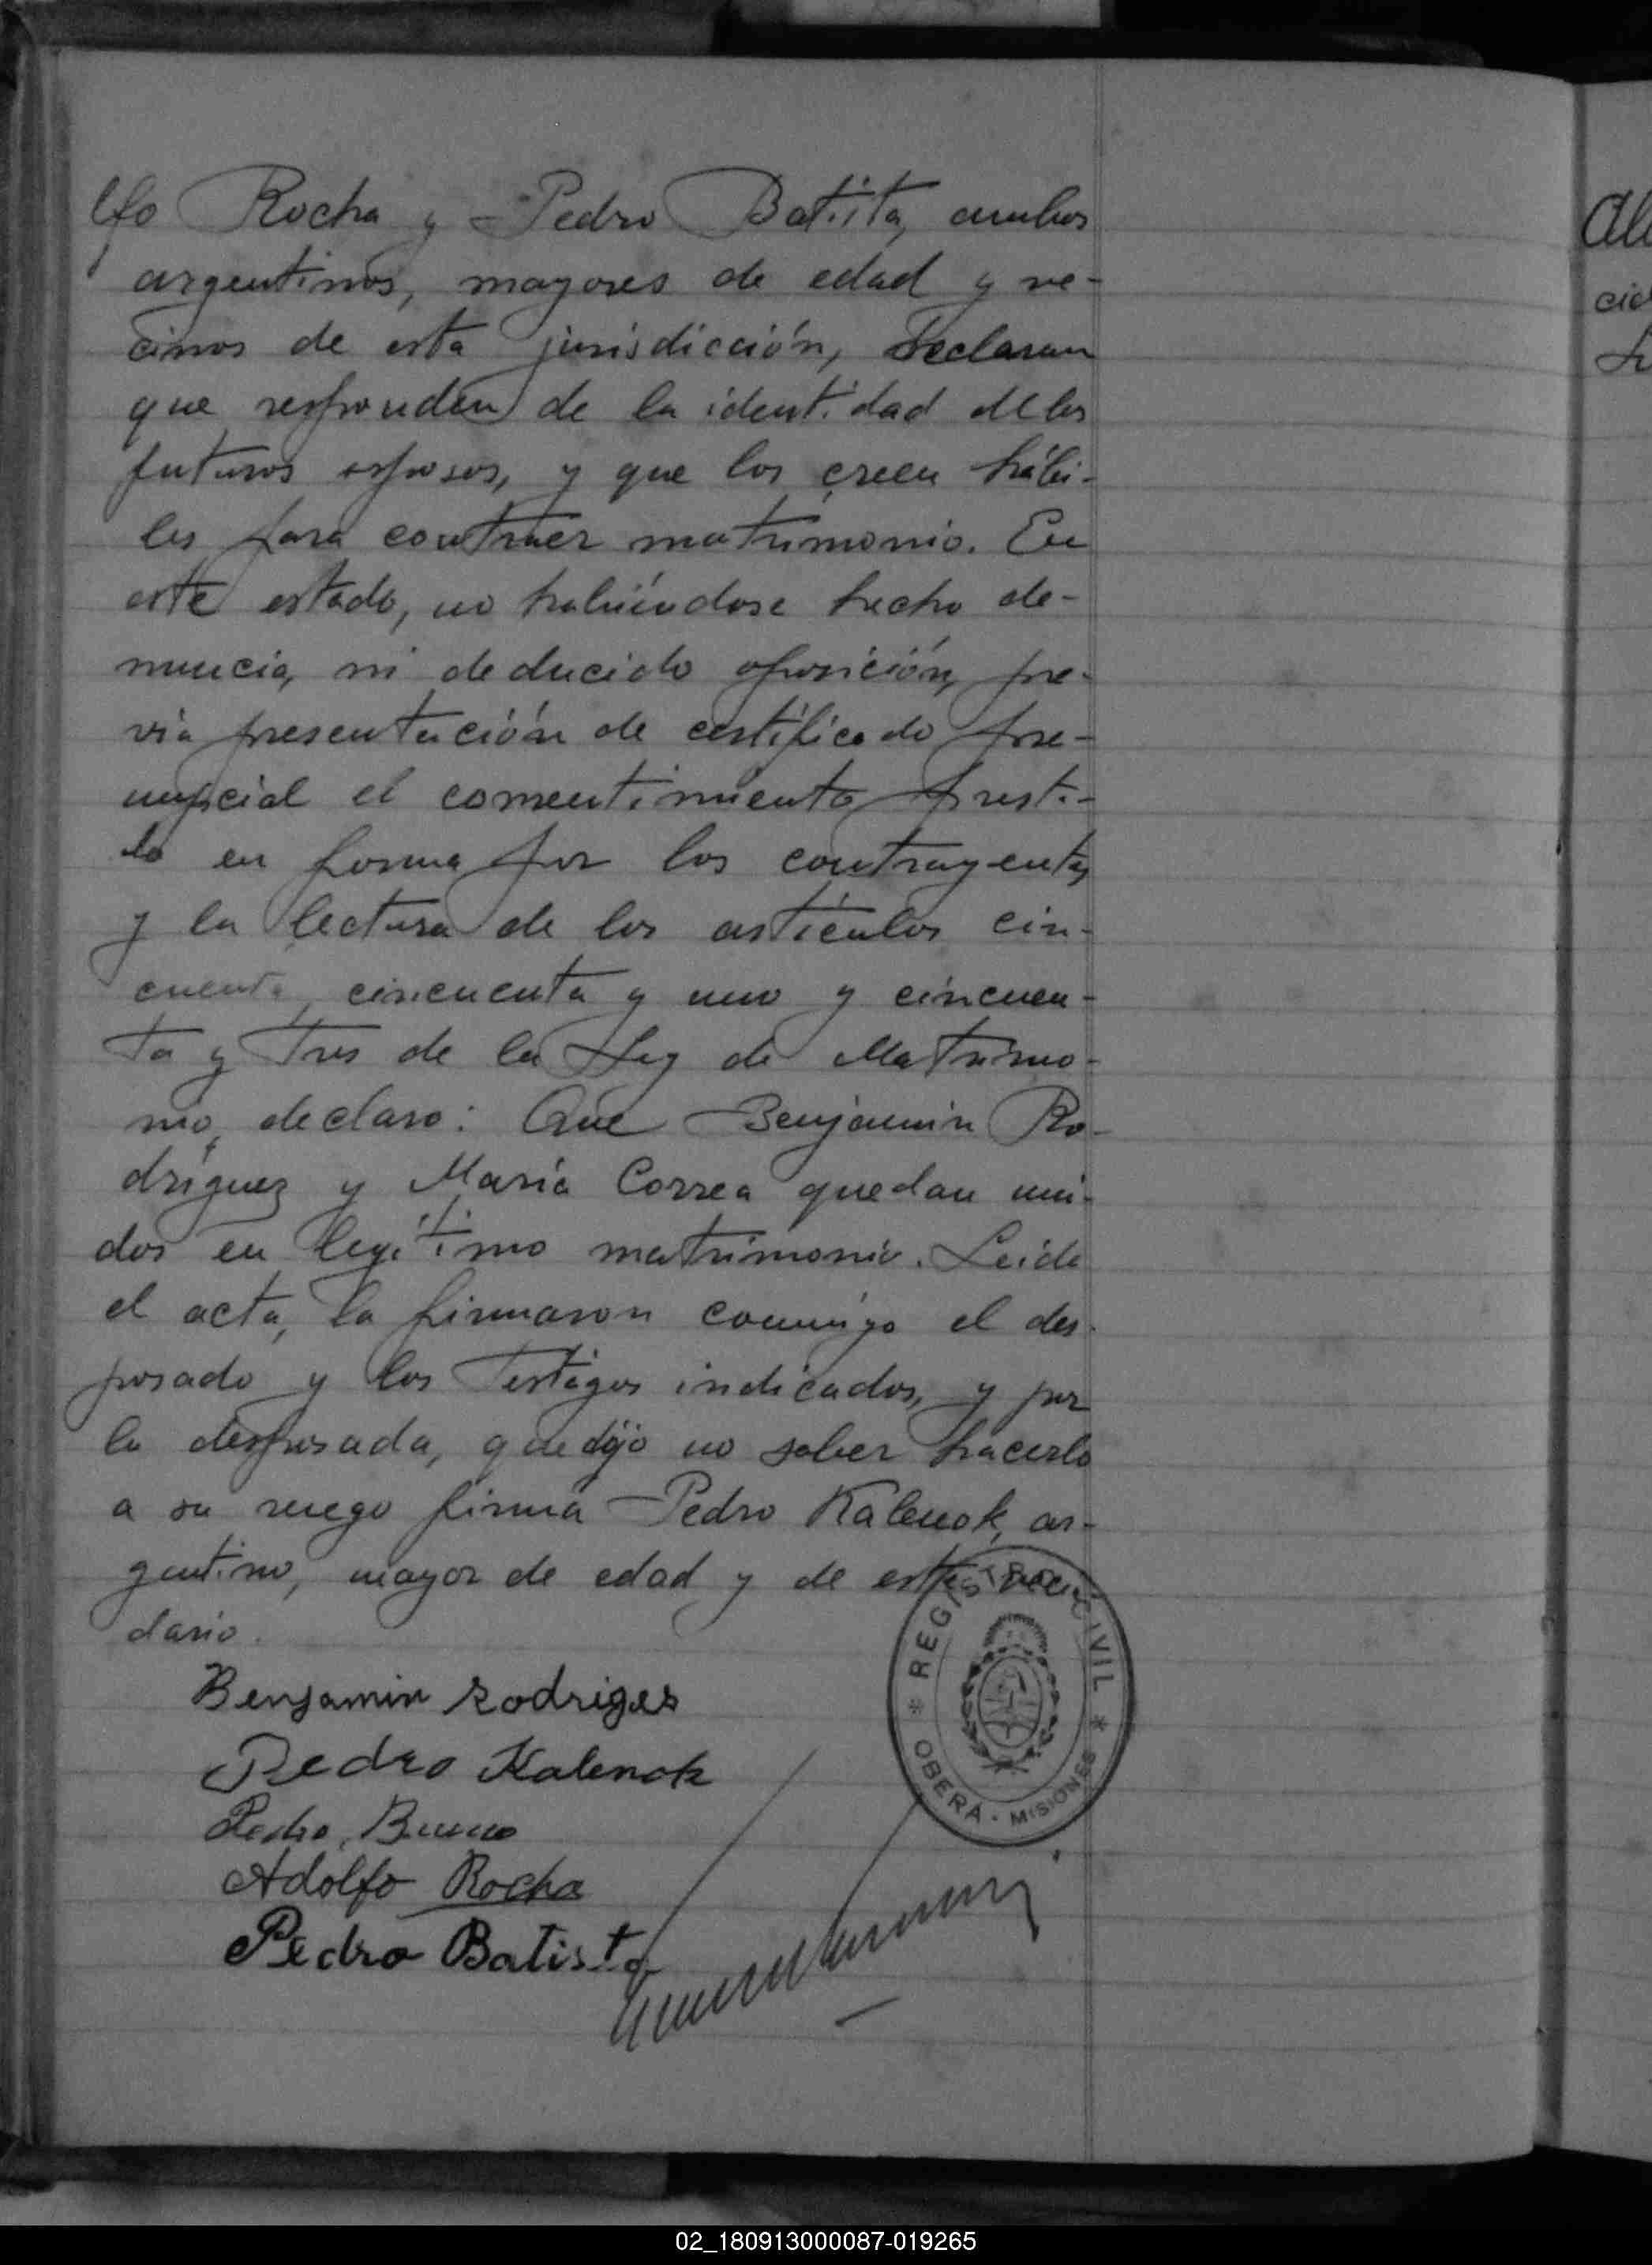 lfo Rocha y Pedro Batista, ambos
argentinos, mayores de edad y ve-
cinos de esta jurisdicción, declaran
que responden de la identidad de los
futuros esposos, y que los creen hábi-
les para contraer matrimonio. En
este estado, no habiéndose hecho de-
nuncia, ni deducido oposición, pre-
via presentación de certificado pre-
nupcial el consentimiento presta-
do en forma por los contrayentes,
y la lectura de los artículos cin-
cuenta, cincuenta y uno y cincuen-
ta y tres de la Ley de Matrimo-
nio, declaro: Que Benjamin Ro-
dríguez y María Correa quedan uni-
dos en legítimo matrimonio. Leida
el acta, la firmaron conmigo el des-
posado y los testigos indicados, y por
la desposada, que dijo no saber hacerlo
a su ruego firma Pedro Kalenok, ar-
gentino, mayor de edad y de este vecin-
dario.
Benjamin Rodriges
Pedro Kalenok
Pedro
Adolfo Rocha
Pedro Batista
REGISTRO CIVIL
OBERÁ - MISIONES
Al
cie
02_180913000087-019265